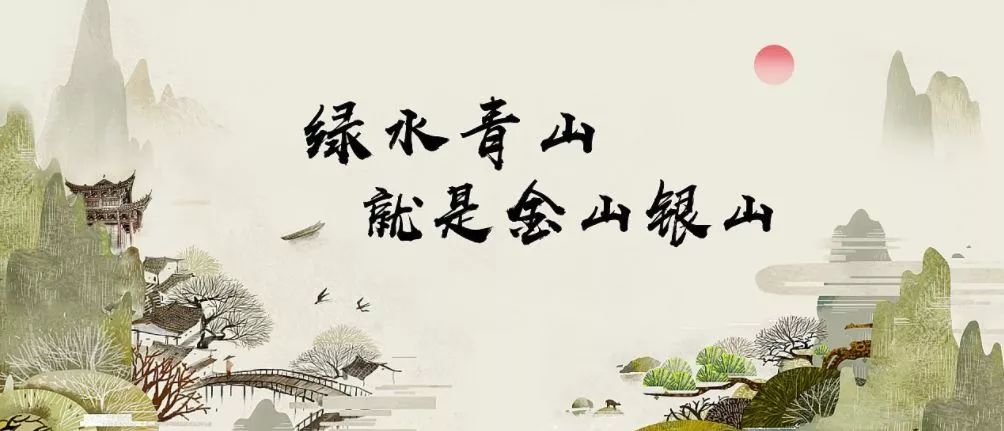 绿水青山
就是金山银山